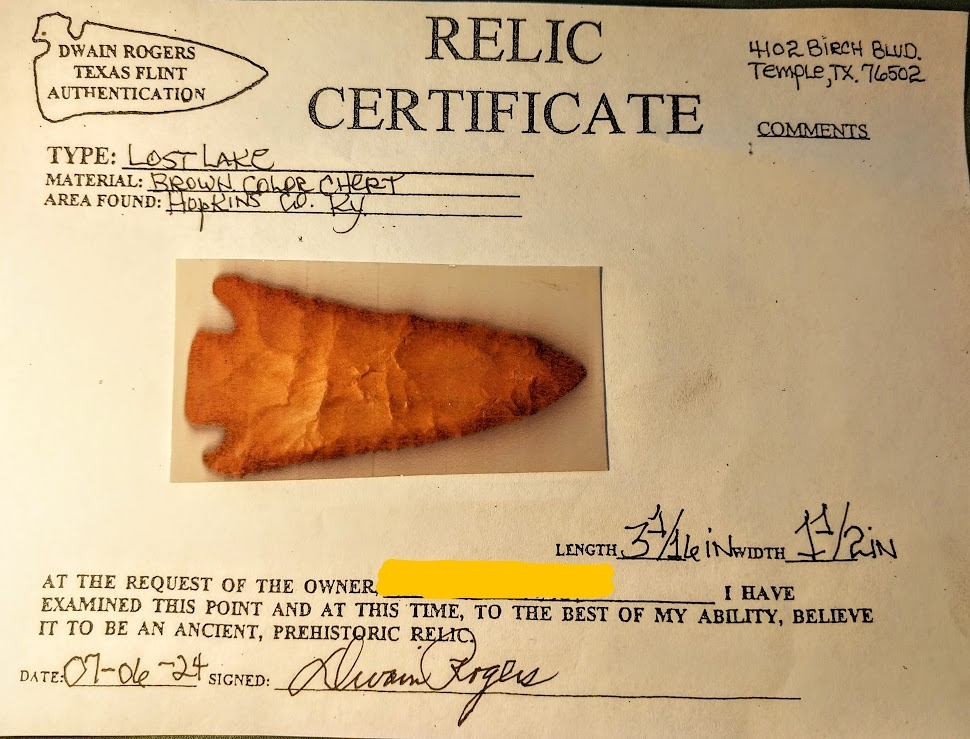 DWAIN ROGERS
TEXAS FLINT
AUTHENTICATION
RELIC
CERTIFICATE
4102 BIRCH BLVD.
Temple, TX. 76502
COMMENTS
TYPE: LOST LAKE
MATERIAL: BROWN COLOR CHERT
AREA FOUND: HOPKINS CO. Ky.
LENGTH 3 1/16 iN WIDTH 1 1/2 iN
AT THE REQUEST OF THE OWNER, I HAVE
EXAMINED THIS POINT AND AT THIS TIME, TO THE BEST OF MY ABILITY, BELIEVE
IT TO BE AN ANCIENT, PREHISTORIC RELIC.
DATE: 07-06-24 SIGNED: Dwain Rogers